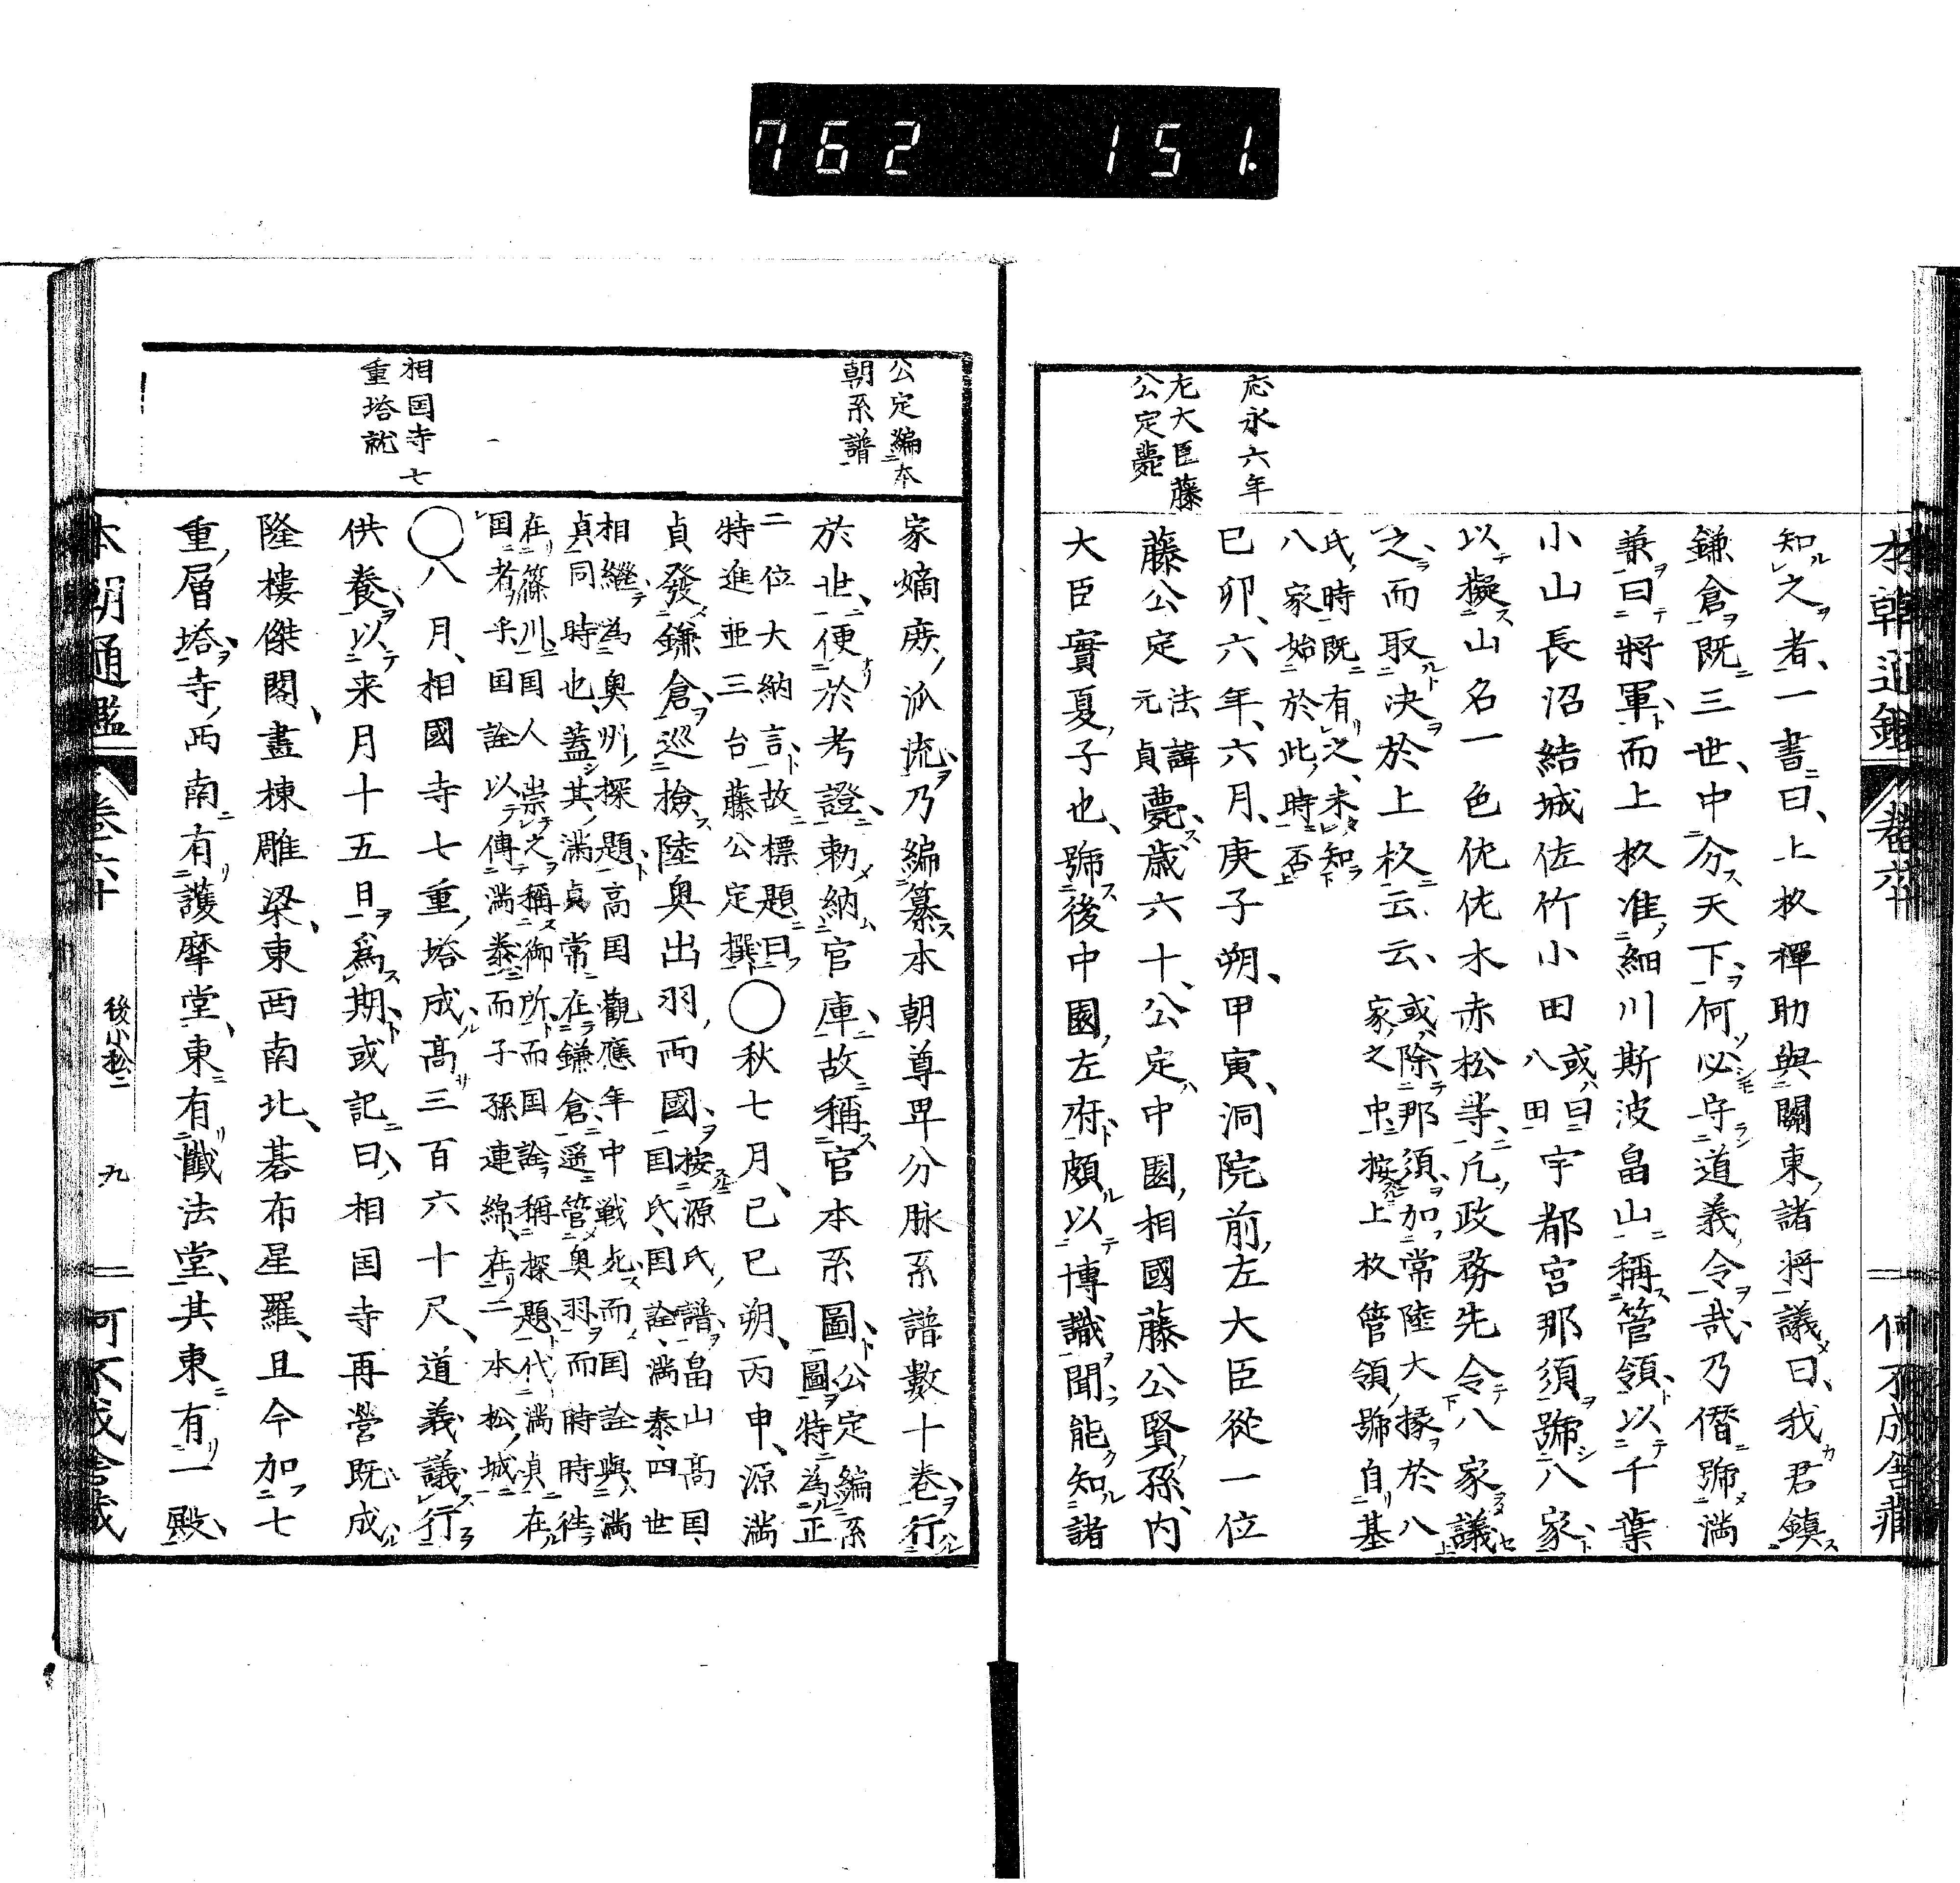 762 151.
応永六年
左大臣藤
公定薨
知之者、一書曰、上杦禪助與關東諸將議曰、我君鎮
鎌倉既三世、中分天下、何必守道義令哉、乃僭號満
兼曰將軍、而上杦准細川斯波畠山稱管領、以千葉
小山長沼結城佐竹小田或曰八田宇都宮那須號八家、
以擬山名一色佐佐木赤松等、凢政務先令八家議
之而取決於上杦云云、或除那須、加常陸大掾於八家之中、按上杦管領號自基
氏時既有之、未知八家始於此時否
己卯、六年、六月、庚子朔、甲寅、洞院前左大臣從一位
藤公定法諱元貞薨、歳六十、公定中園相國藤公賢孫、内
大臣實夏子也、號後中園左府、頗以博識聞、能知諸
公定編本
朝系譜
相国寺七
重塔就
家嫡庶流派、乃編纂本朝尊卑分脉系譜數十卷、行
於世、便於考證、勅納官庫、故稱官本系圖、公定編系圖、特為正
二位大納言、故標題曰、特進亜三台藤公定撰〇秋七月、己巳朔、丙申、源満
貞發鎌倉、巡撿陸奥出羽両國、按源氏譜、畠山高国、国氏、国詮、満泰、四世
相繼為奥州探題、高国觀應年中戦死、而国詮與満
貞同時也、蓋其満貞常在鎌倉、遥管奥羽、而時時徃
在篠川、国人崇之稱御所、而国詮稱探題、代満貞在
国者乎、国詮以傳満泰、而子孫連綿、在二本松城
〇八月、相國寺七重塔成、高三百六十尺、道義議行
供養、以来月十五日為期、或記曰、相国寺再營既成
隆樓傑閣、畫棟雕梁、東西南北、碁布星羅、且今加七
重層塔、寺西南有護摩堂、東有懺法堂、其東有一殿、
本朝通鑑 卷六十 後小松二 九